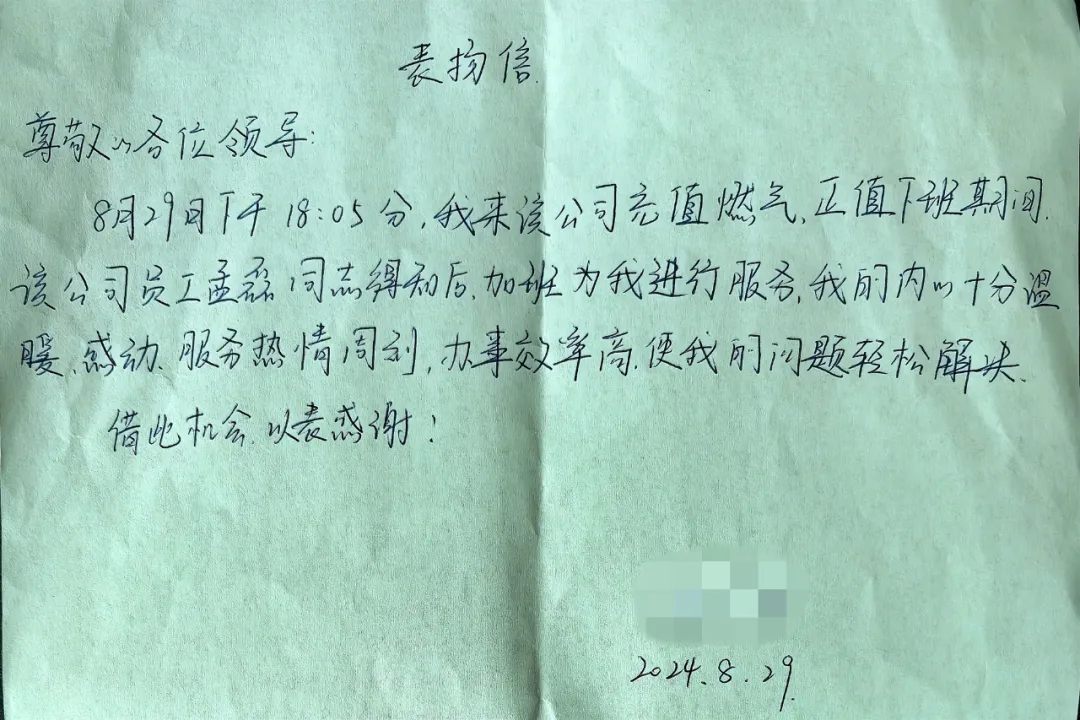 表扬信.
尊敬的各位领导:
8月29日下午18:05分,我来该公司充值燃气,正值下班期间.
该公司员工孟磊同志得知后,加班为我进行服务,我的内心十分温
暖、感动.服务热情周到,办事效率高.使我的问题轻松解决.
借此机会,以表感谢!
2024.8.29.